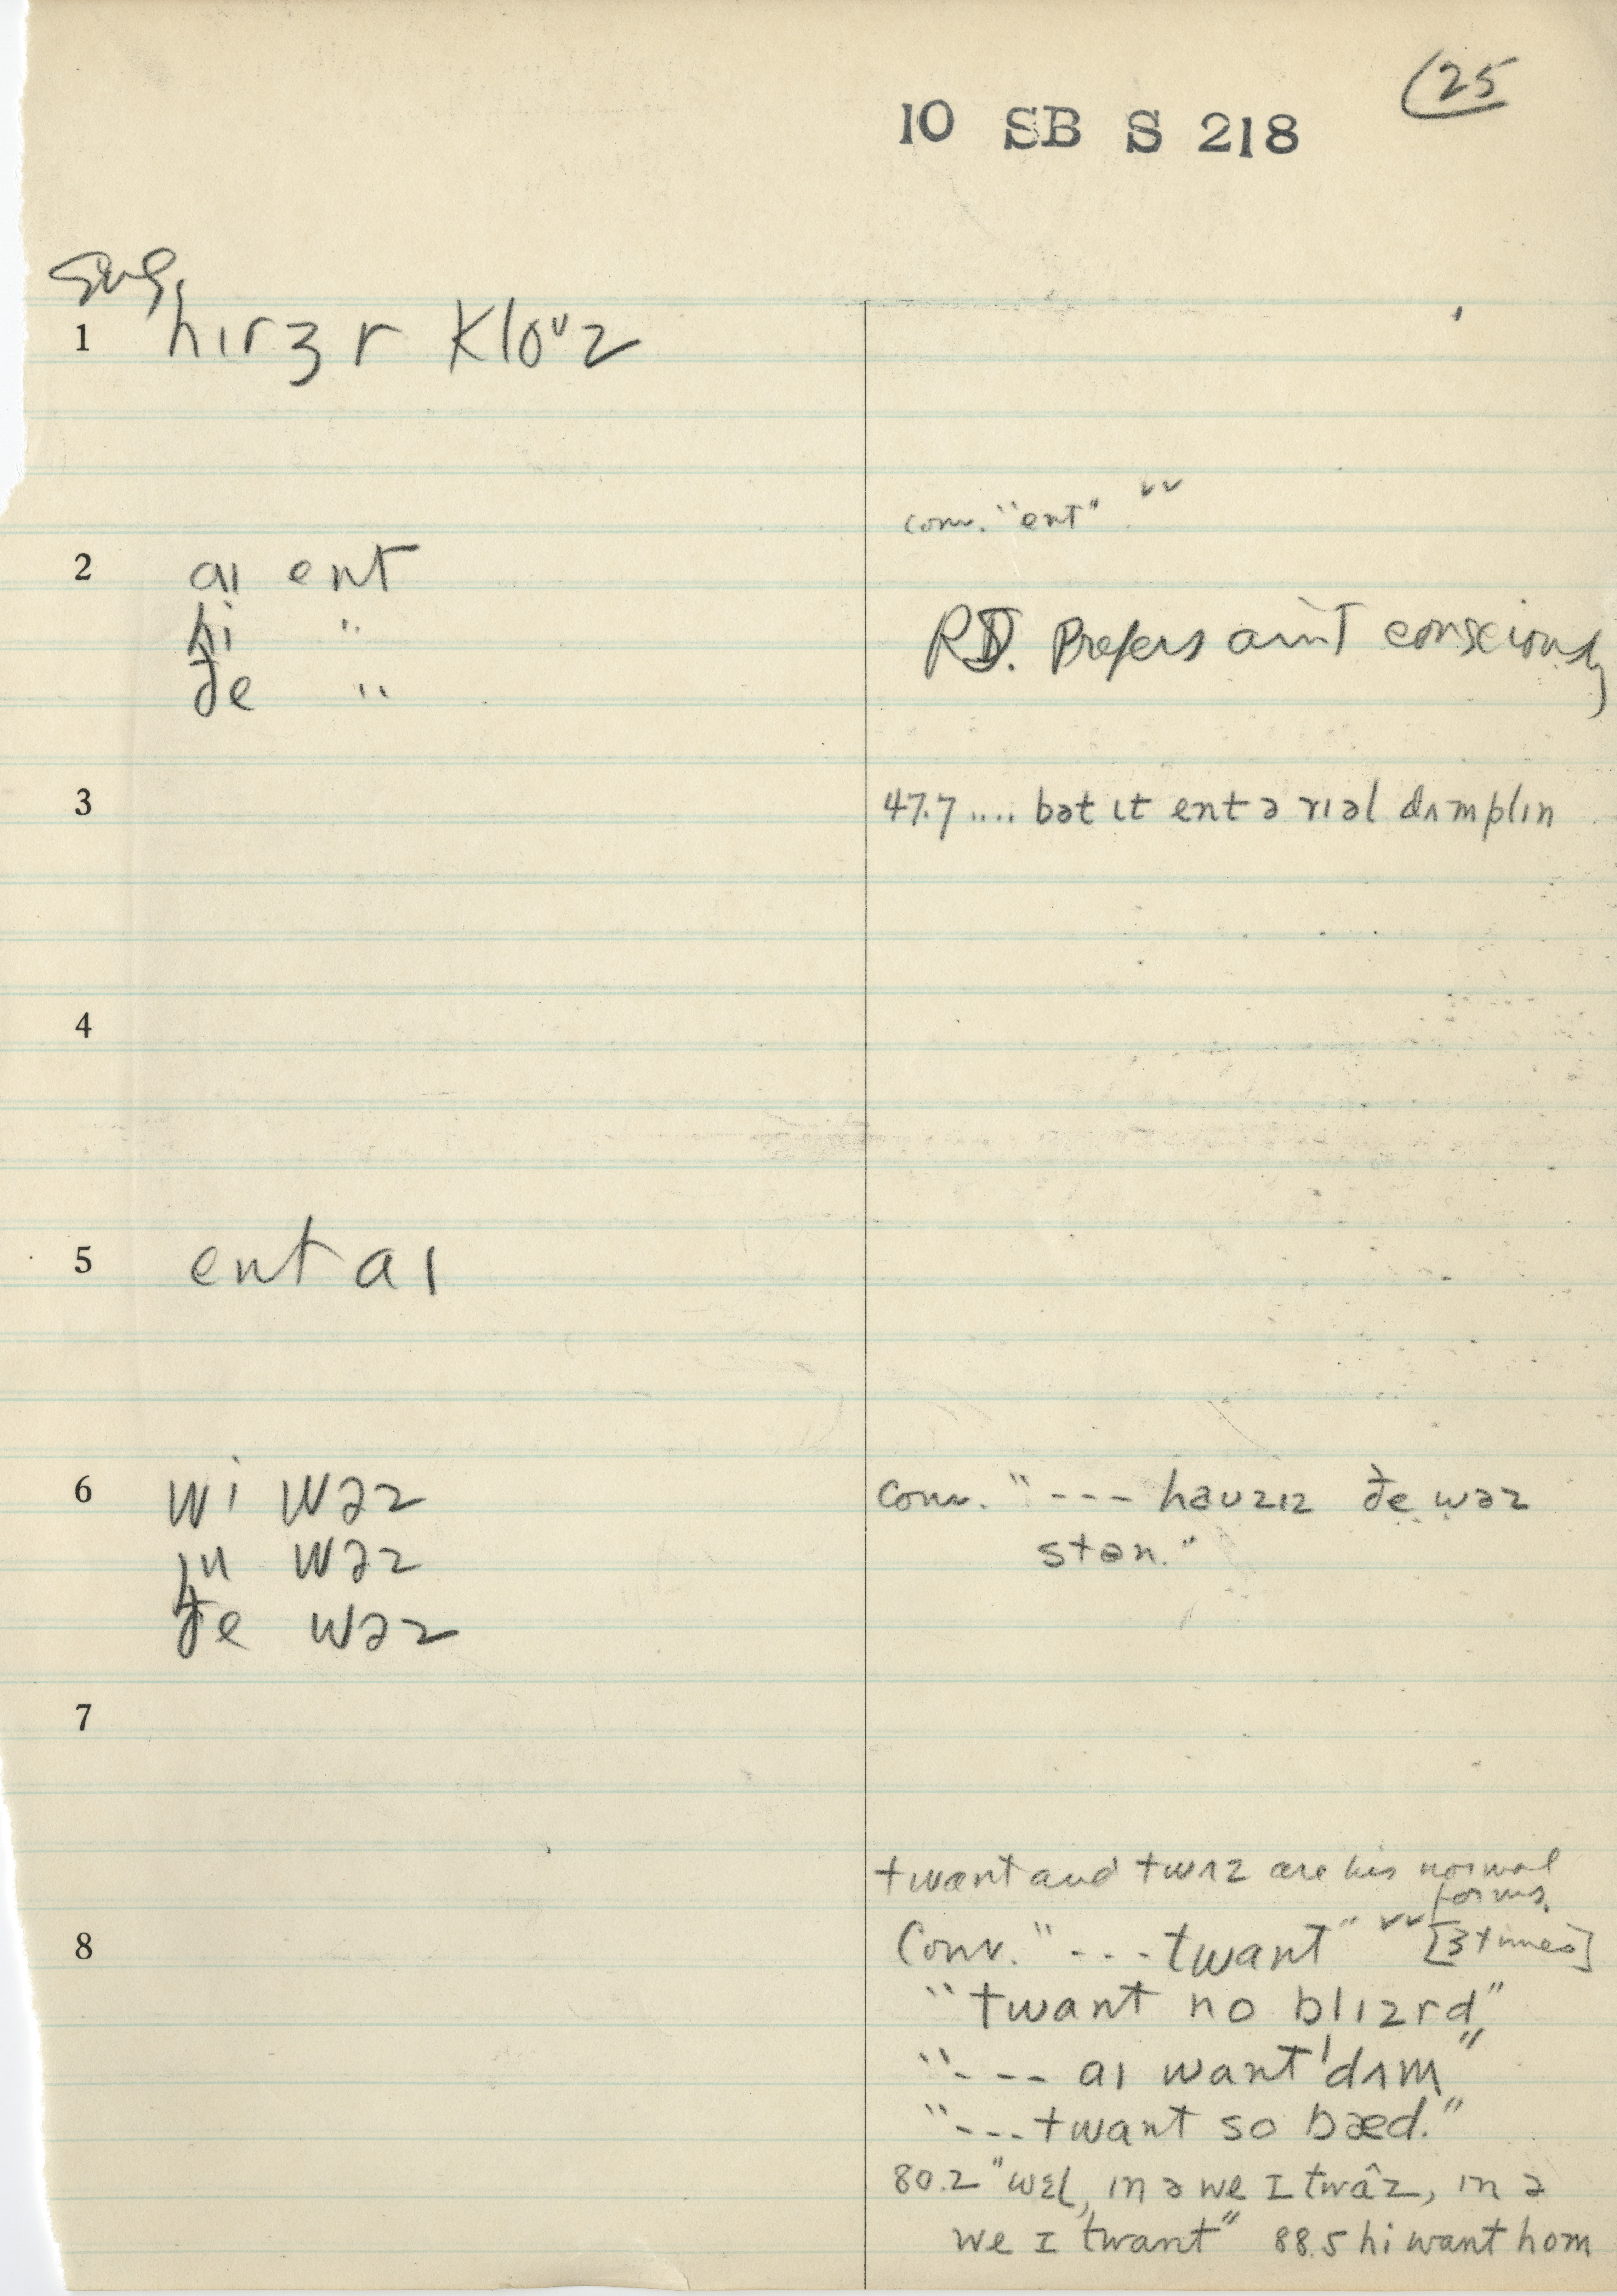 (25
10 SB S 218
Sug.
1 hɪrʒ r kloᶷz
conv. "ent" ✓✓
2 aɪ ent
hi "
ðe "
RD. Prefers ain't consciously
3 47.7 .... bət ɪt ent ə rɪəl dʌmplɪn
4
5 ent aɪ
6 wi wəz
ju wəz
ðe wəz
conv. "--- həuzɪz ðe wəz
stən."
7
twant and twʌz are his normal
forms.
8 Conv. "---twant" ✓✓ [3 times]
"twant no blɪzrd"
"--- aɪ want ˈdʌm"
"---twant so bæd."
80.2 "wɛl, ɪn ə we ɪ twâz, ɪn ə
we ɪ twant" 88.5 hi want hom